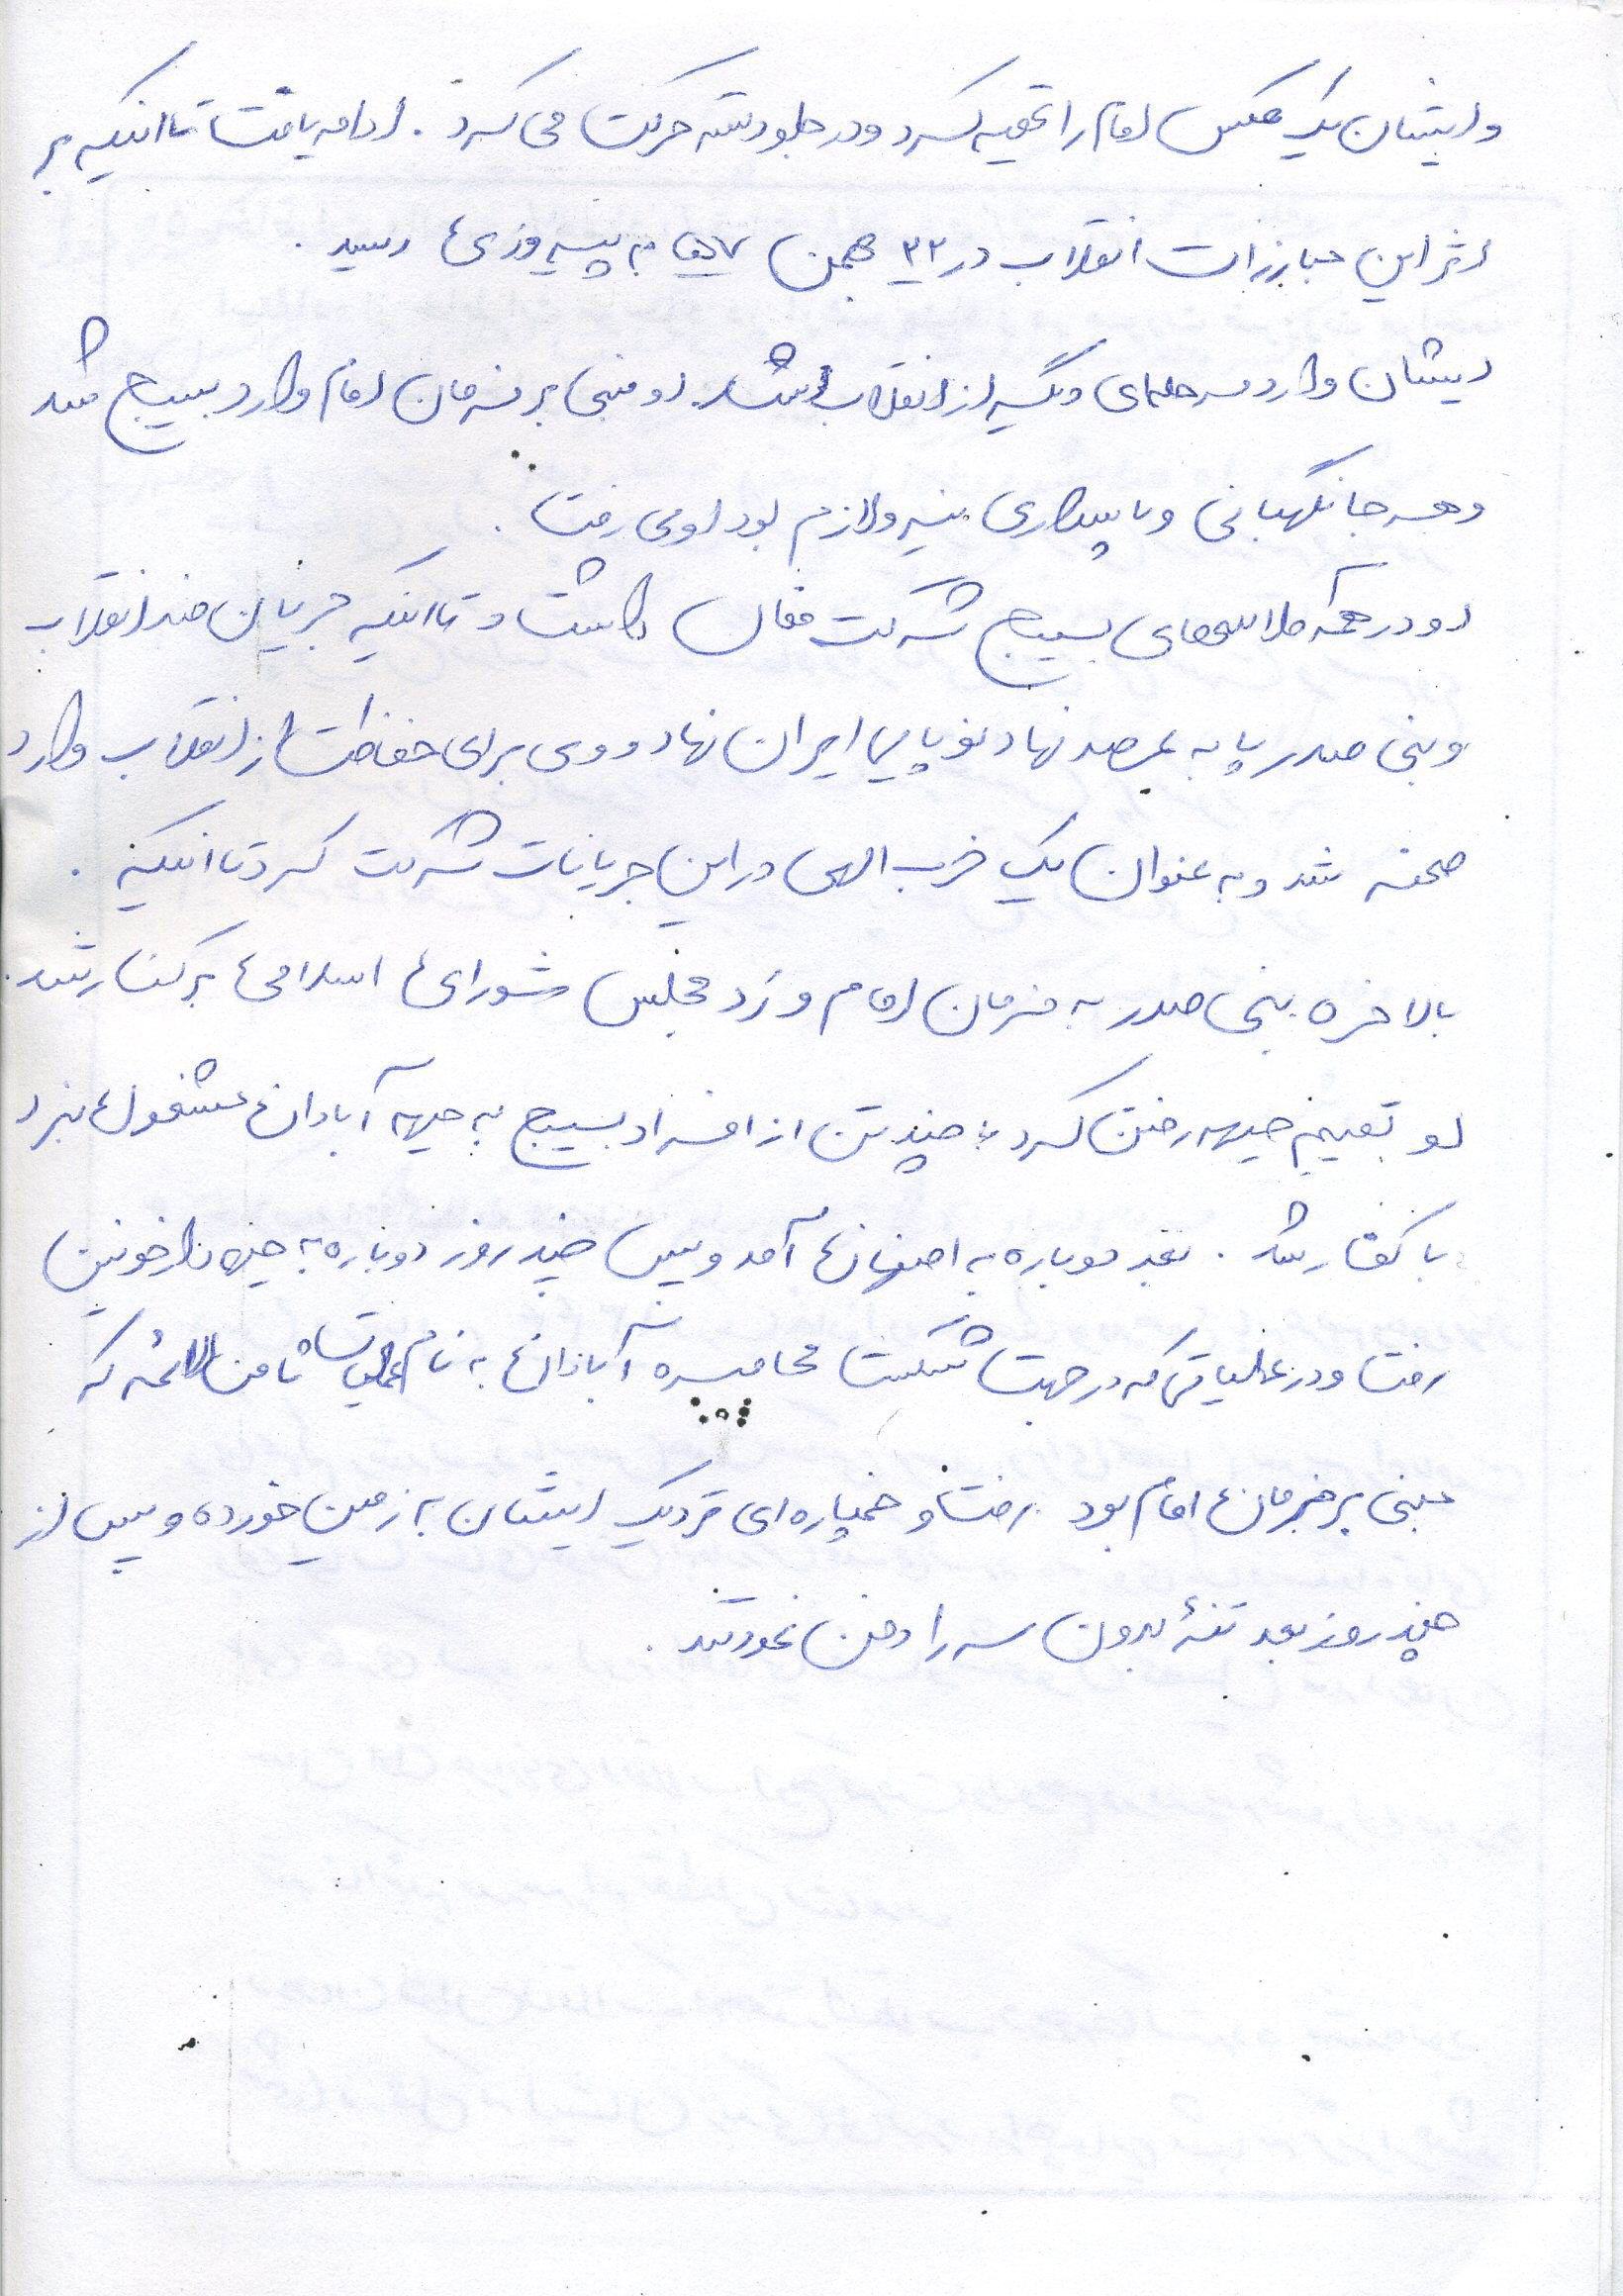 و ایشان یک عکس امام را تهیه کرد و در جلو دسته حرکت می کرد . ادامه یافت تا اینکه بر
اثر این مبارزات انقلاب در ۲۲ بهمن ۵۷ به پیروزی رسید .
ایشان وارد مرحله‌ای دیگر از انقلاب شد. او مبنی بر فرمان امام وارد بسیج شد
و هر جا نگهبانی و پاسداری نیرو لازم بود او می رفت .
او در همه کلاسهای بسیج شرکت فعال داشت و تا اینکه جریان ضد انقلاب
و بنی صدر پا به عرصه نهاد نوپای ایران نهاد و وی برای حفاظت از انقلاب وارد
صحنه شد و به عنوان یک حزب الهی در این جریانات شرکت کرد تا اینکه .
بالاخره بنی صدر به فرمان امام و رَد مجلس شورای اسلامی برکنار شد.
او تصیم جبهه رفتن کرد با چند تن از افراد بسیج به جبهه آبادان مشغول نبرد
با کفار شد . بعد دوباره به اصفهان آمد و پس چند روز دوباره به جبهه دارخوئین
رفت و در عملیاتی که در جهت شکست محاصره آبادان به نام عملیات ثامن الائمه که
مبنی بر فرمان امام بود رفت و خمپاره ای نزدیک ایشان به زمین خورده و پس از
چند روز بعد تنهٔ بدون سر را دفن نمودند .